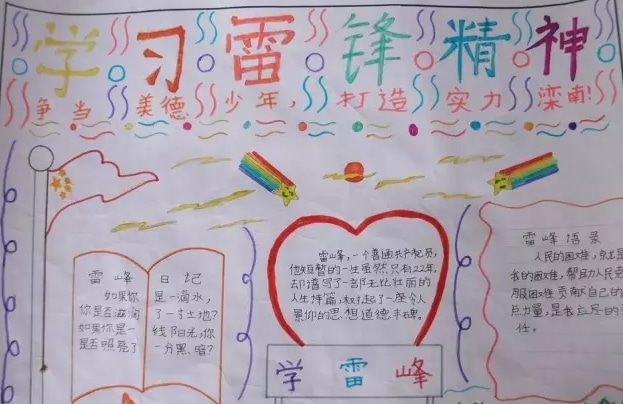 学习雷锋精神
争当美德少年,打造实力滦南!
雷峰日记
如果你是一滴水,
你是否滋润了一寸土地?
如果你是一线阳光,你
是否照亮了一分黑暗?
雷峰,一个普通共产党员,
他短暂的一生虽然只有22年,
却谱写了一首无比壮丽的
人生诗篇,树起了一座令人
景仰的思想道德丰碑。
学雷峰
雷峰语录
人民的困难,就是
我的困难,帮助人民克
服困难贡献自己的
力量,是我应尽的
任。